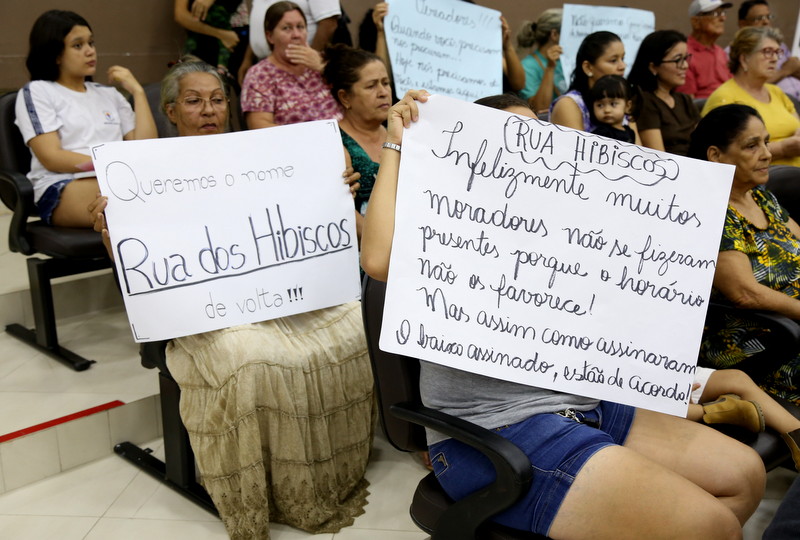 Vereadores!!!
Quando vocês precisam
nos procuram!
Hoje nós precisamos de
Queremos o nome
Rua dos Hibiscos
de volta!!!
RUA HIBISCOS
Infelizmente muitos
moradores não se fizeram
presentes porque o horário
não os favorece!
Mas assim como assinaram
O baixo assinado, estão de acordo!